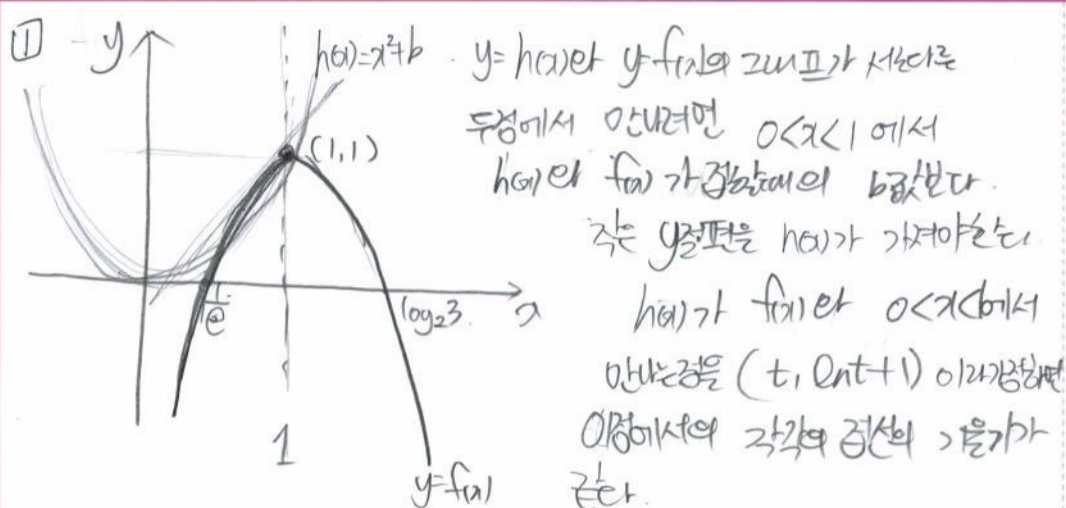 1
y
h(x)=x²+b
(1,1)
1/e
log₂3
x
1
y=f(x)
y=h(x)와 y=f(x)의 그래프가 서로다른
두점에서 만나려면 0<x<1에서
h(x)와 f(x)가 접할때의 b값보다
작은 y절편을 h(x)가 가져야한다.
h(x)가 f(x)와 0<x<1에서
만나는점을 (t, lnt+1)이라가정하면
이점에서의 각각의 접선의 기울기가
같다.